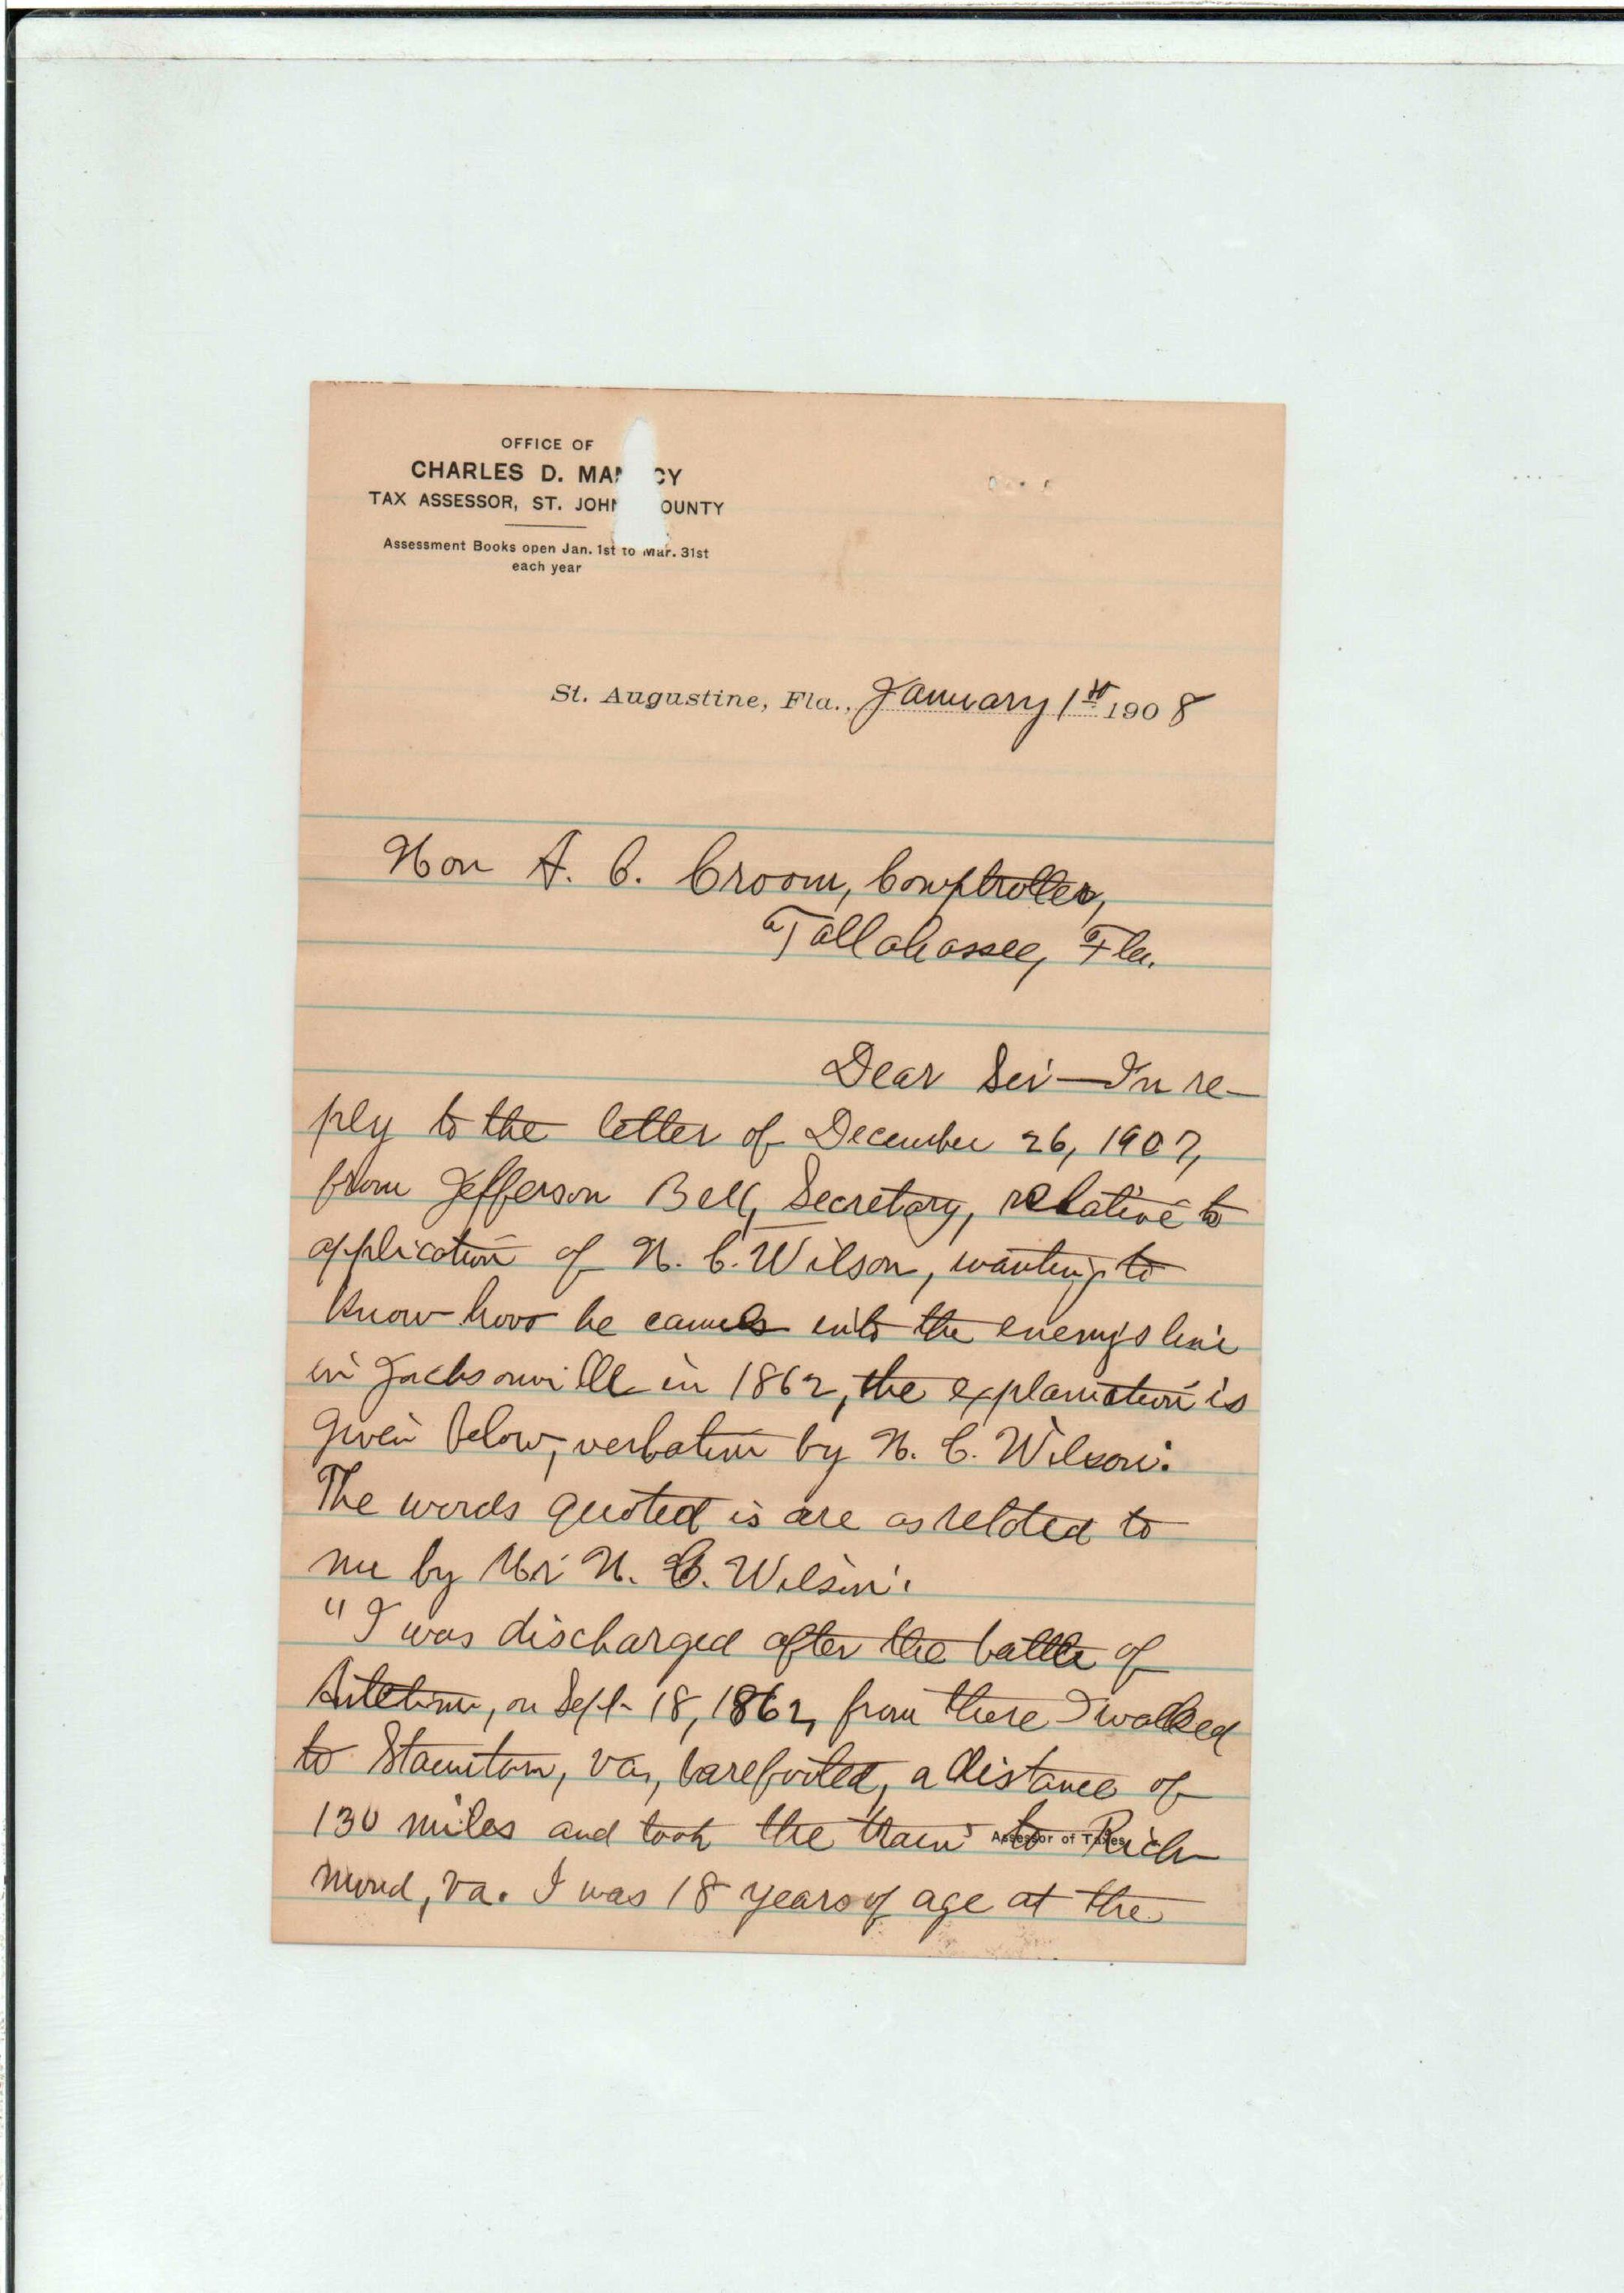 OFFICE OF
CHARLES D. MAN CY
TAX ASSESSOR, ST. JOHN OUNTY
Assessment Books open Jan. 1st to Mar. 31st
each year
St. Augustine, Fla., January 1st 1908
Hon A. C. Croom, Comptroller,
Tallahassee, Fla.
Dear Sir—In re-
ply to the letter of December 26, 1907,
from Jefferson Bell, Secretary, relative to
application of N. C. Wilson, wanting to
know how he came into the enemy's line
in Jacksonville in 1862, the explanation is
given below, verbatim by N. C. Wilson:
The words quoted is are as related to
me by Mr N. C. Wilson:
"I was discharged after the battle of
Antetim, on Sept- 18, 1862, from there I walked
to Staunton, Va., barefooted, a distance of
130 miles and took the train to Rich-
Assessor of Taxes
mond, Va. I was 18 years of age at the